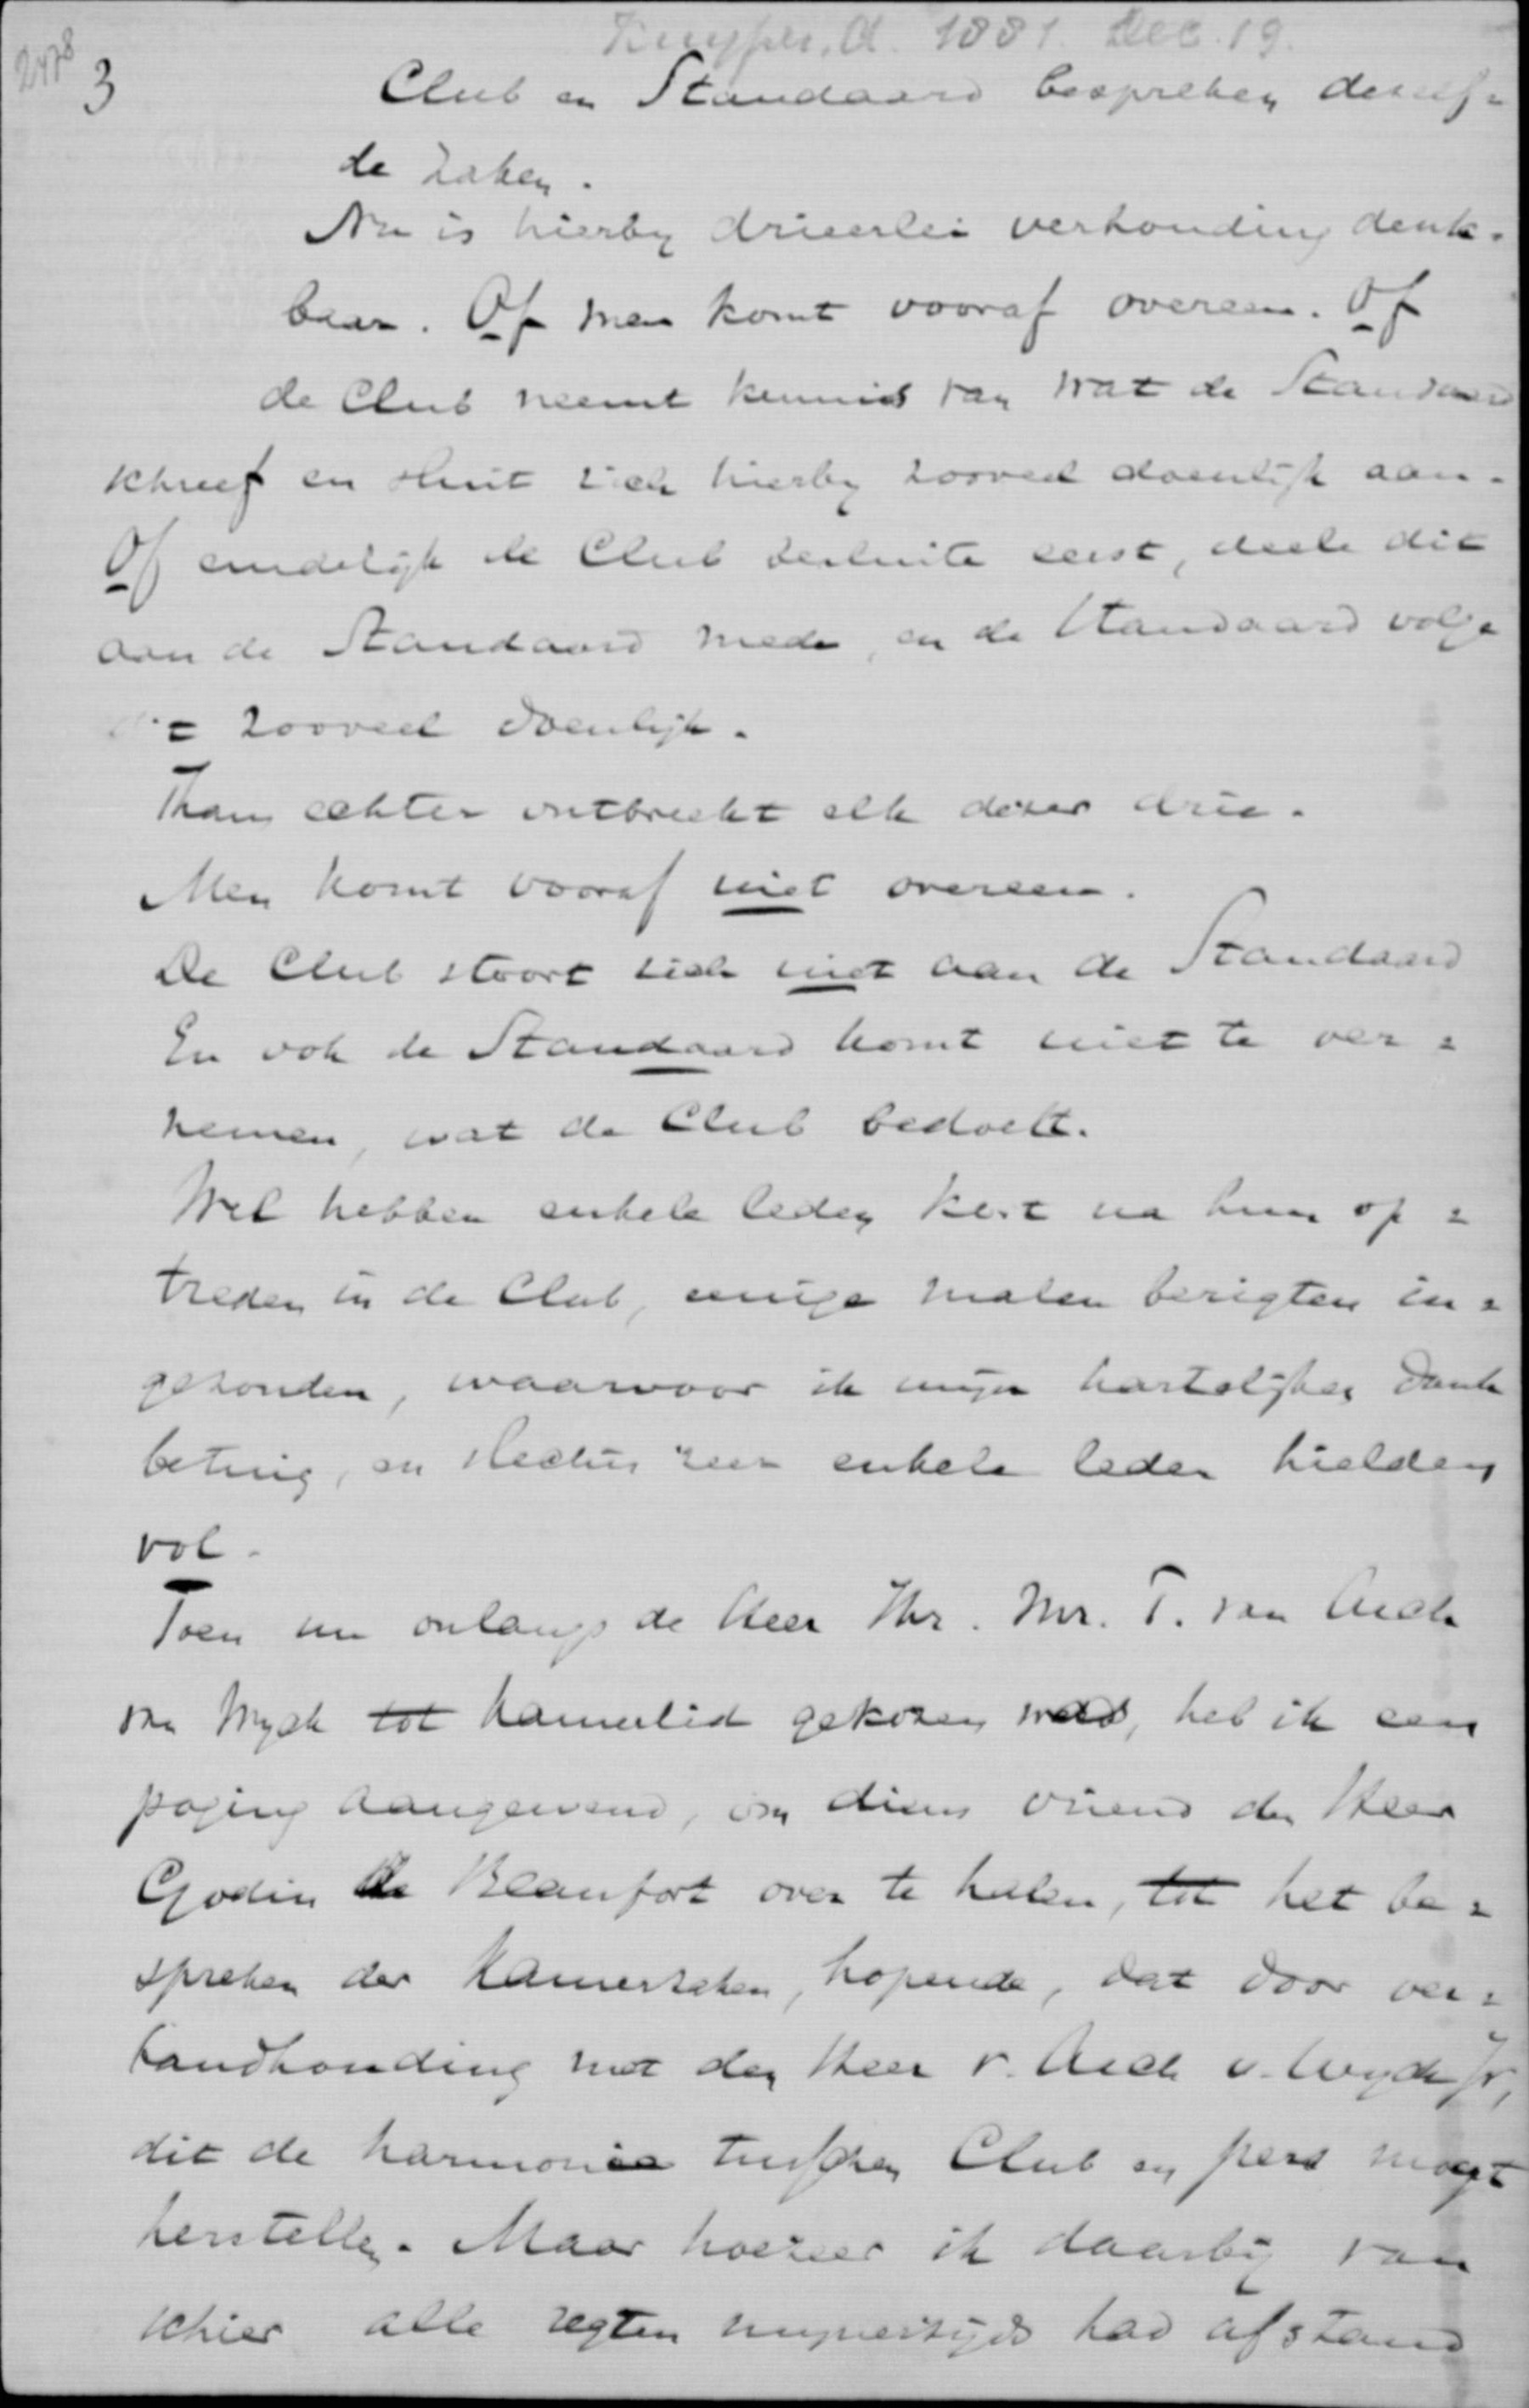 Kuyper, A. 1881. Dec. 19.
2478
3
Club en Standaard bespreken dezelf=
de zaken.
Nu is hierby drieerlei verhouding denk=
baar. Of men komt vooraf overeen. Of
de Club neemt kennis van wat de Standaard
schreef en sluit zich hierby zooveel doenlijk aan.
Of eindelijk de Club besluite eerst, deele dit
aan de Standaard mede, en de Standaard volge
= zooveel doenlijk.
Thans echter ontbreekt elk dezer drie.
Men komt vooraf niet overeen.
De Club stoort zich niet aan de Standaard
En ook de Standaard komt niet te ver=
nemen, wat de Club bedoelt.
Wel hebben enkele leden kort na hun op=
treden in de Club, eenige malen berigten in=
gezonden, waarvoor ik mijn hartelijken dank
betuig, en slechts zeer enkele leden hielden
vol.
Toen nu onlangs de Heer Jhr. Mr. T. van Asch
van Wyck tot Kamerlid gekozen was, heb ik een
poging aangewend, om diens vriend den Heer
Godin de Beaufort over te halen, tot het be=
spreken der Kamerzaken, hopende, dat door ver=
bandhouding met den Heer v. Asch v. Wyck Jr,
dit de harmonie tusschen Club en pers mogt
herstellen. Maar hoezeer ik daarbij van
schier alle regten mijnerzijds had afstand